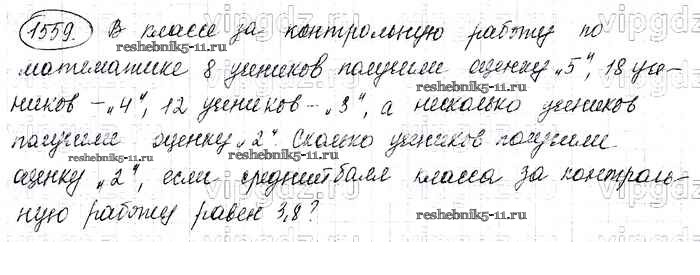 1559. В классе за контрольную работу по
математике 8 учеников получили оценку „5“, 18 уче-
ников – „4“, 12 учеников – „3“, а несколько учеников
получили оценку „2“. Сколько учеников получили
оценку „2“, если средний балл класса за контроль-
ную работу равен 3,8?
reshebnik5-11.ru
reshebnik5-11.ru
reshebnik5-11.ru
reshebnik5-11.ru
reshebnik5-11.ru
vipgdz